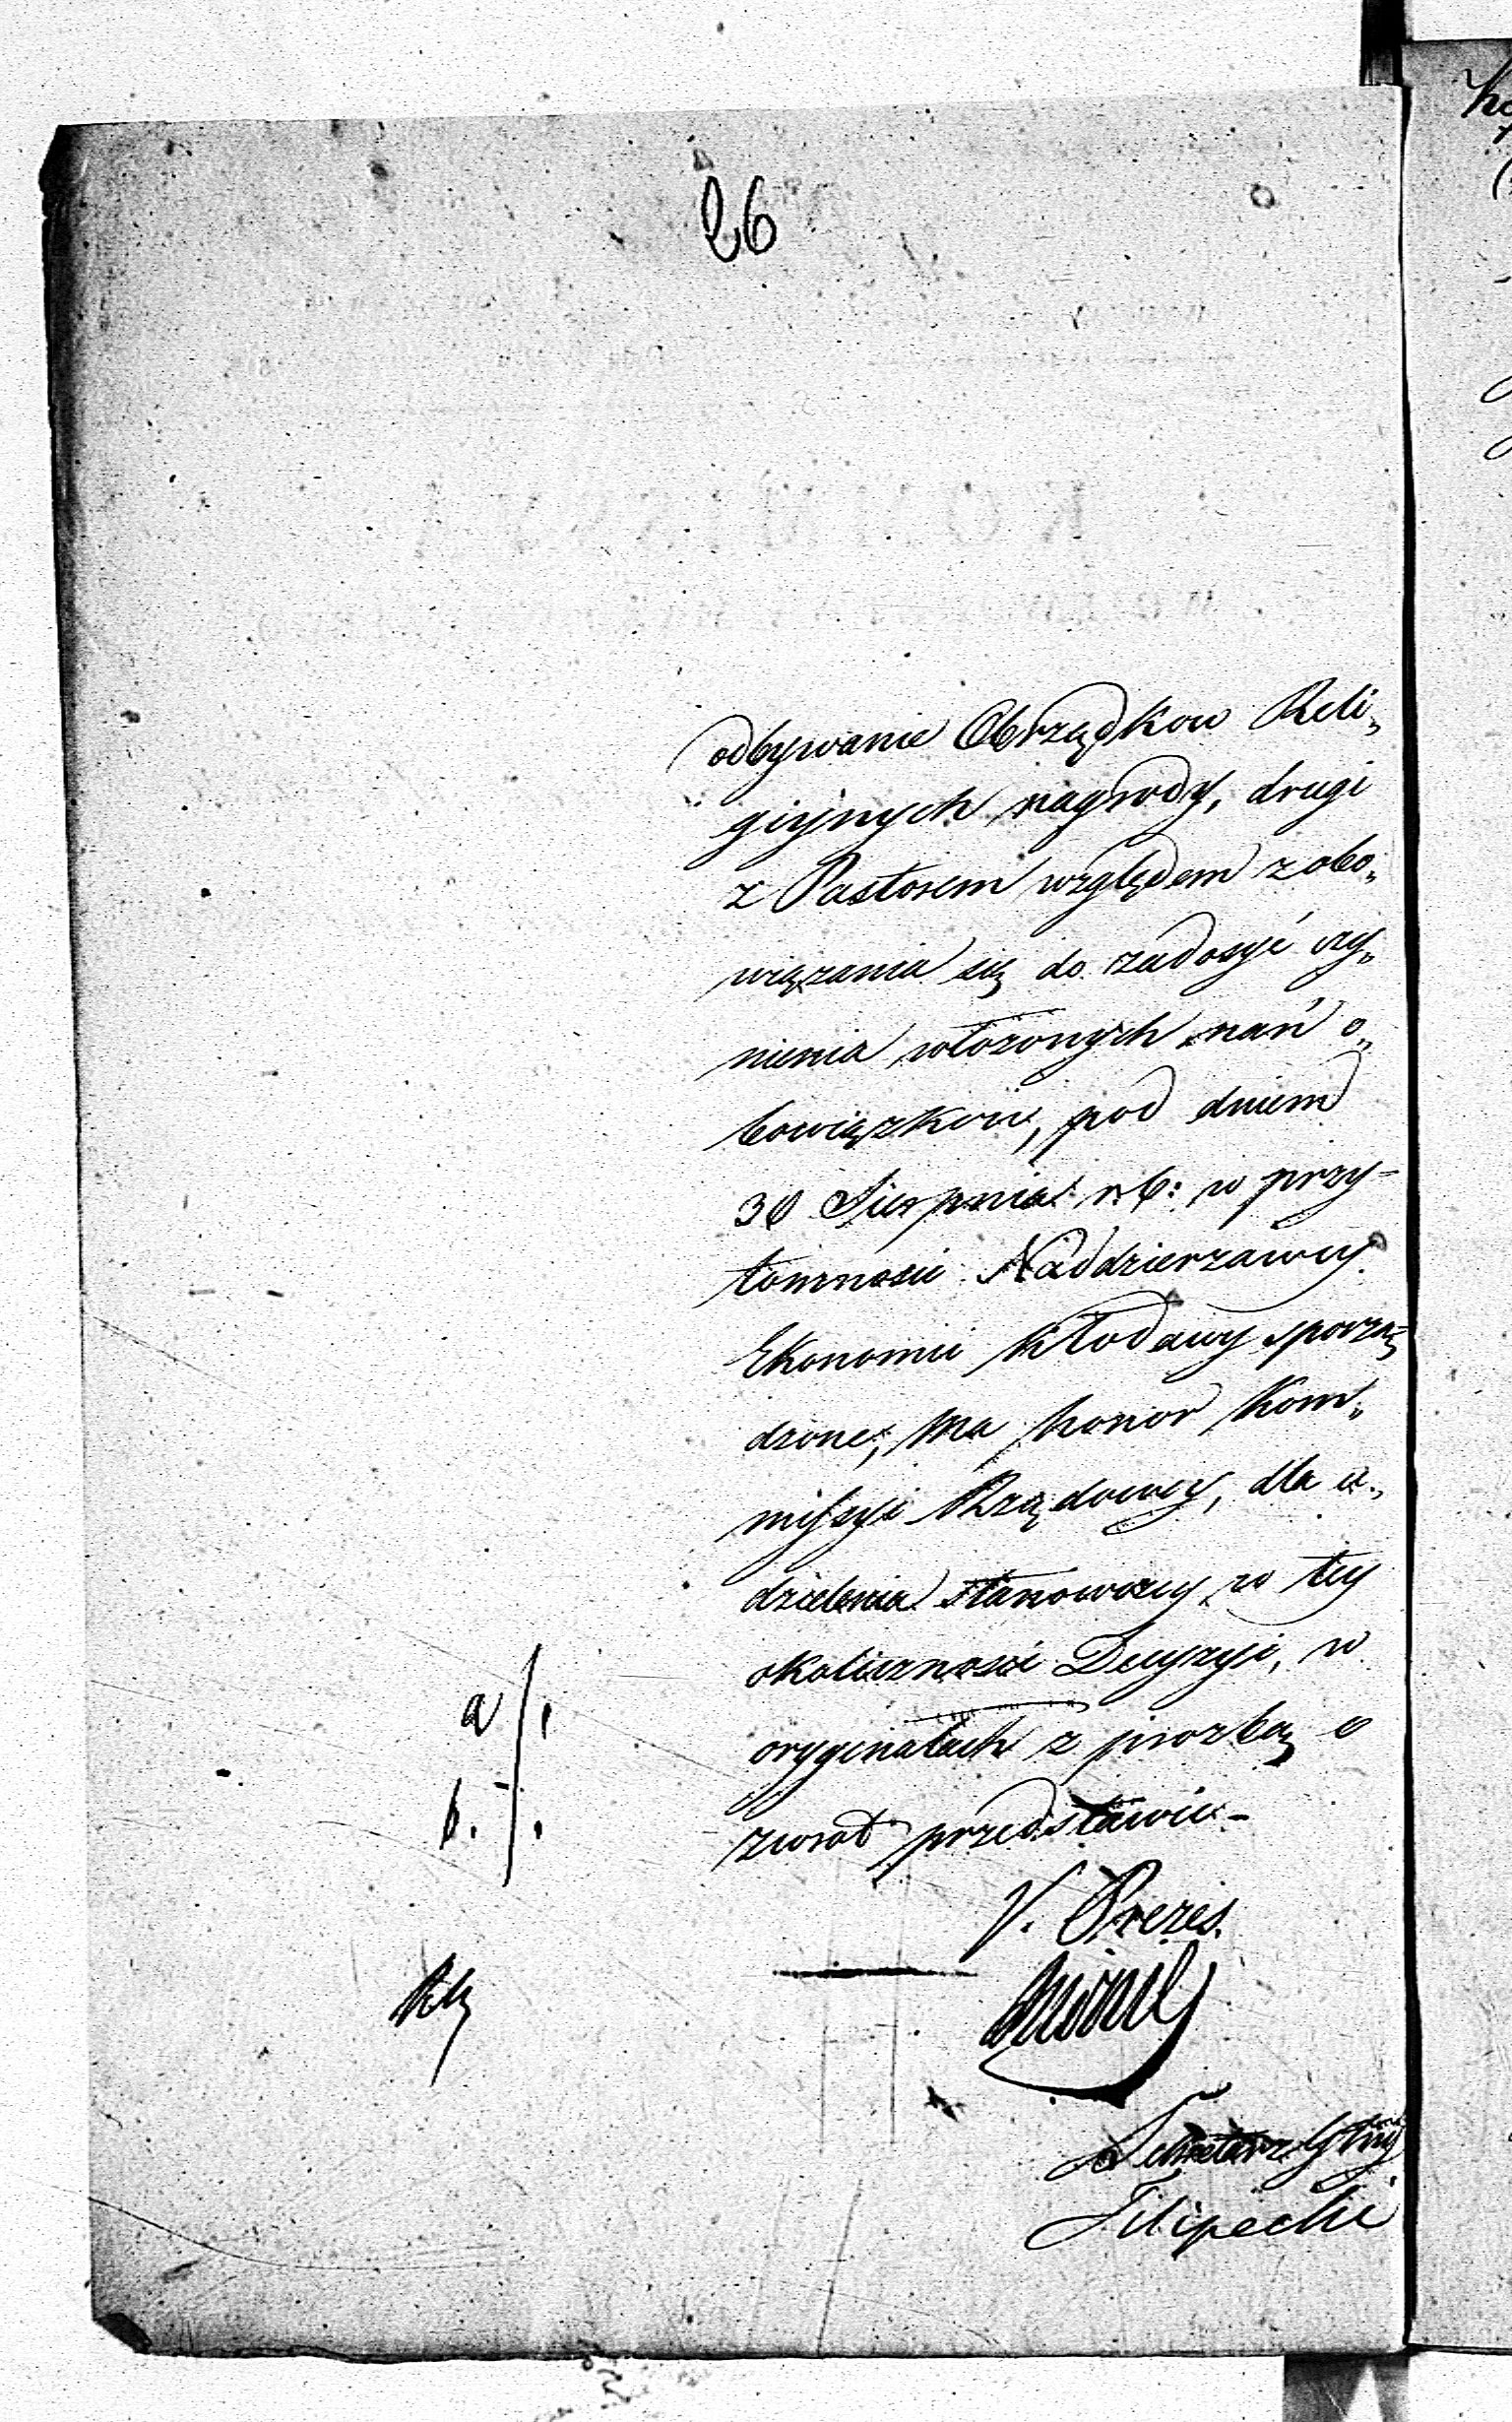 26
odbywanie Obrządkow Reli„
giynych nagrody, drugi
z Pastorem względem zobo„
wiązania się do zadosyć czy„
nienia włożonych nań o„
bowiązkow, pod dniem
30 Sierpnia r. b: w przy-
tomności Naddzierzawcy
Ekonomii Kłodawy sporzą„
dzone, ma honor Kom„
missyi Rządowey, dla u„
dzielenia stanowczey w tey
okoliczności Decyzyi, w
a/.
oryginałach z prozbą o
b./.
zwrot przedstawić.-
V. Prezes.
Sekretarz Głny
Filipecki